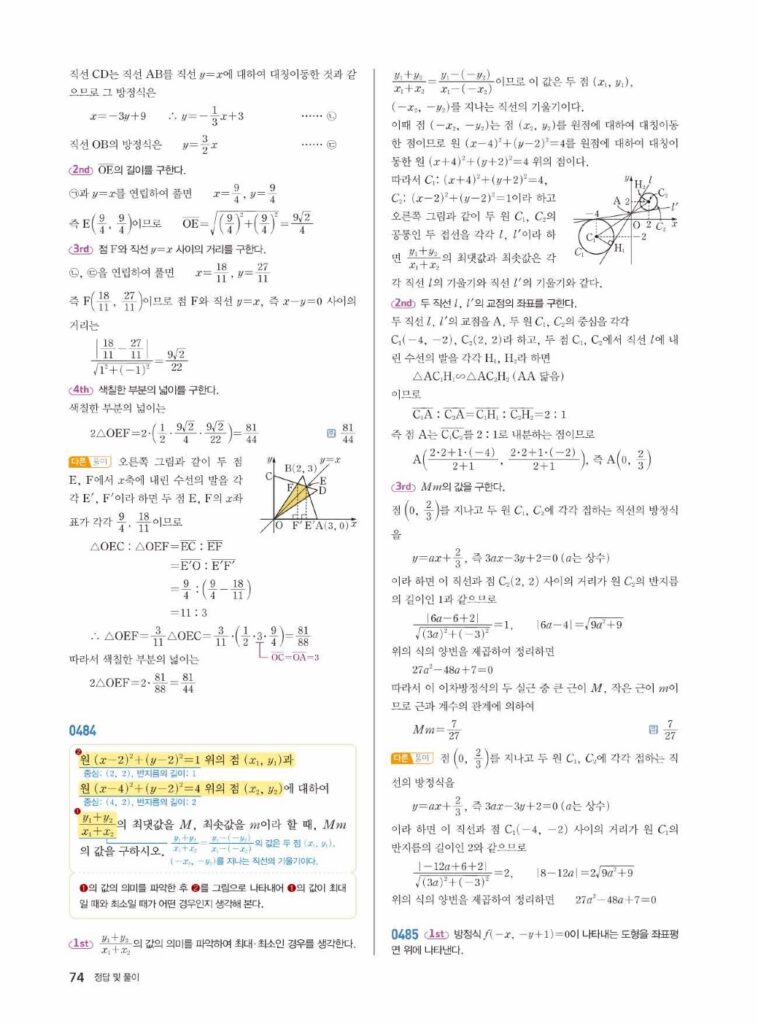 직선 CD는 직선 AB를 직선 y=x에 대하여 대칭이동한 것과 같
으므로 그 방정식은
x=-3y+9 ∴ y=-1/3x+3 ······ ㉡
직선 OB의 방정식은 y=3/2x ······ ㉢
2nd OE의 길이를 구한다.
㉠과 y=x를 연립하여 풀면 x=9/4, y=9/4
즉 E(9/4, 9/4)이므로 OE=√((9/4)²+(9/4)²)=9√2/4
3rd 점 F와 직선 y=x 사이의 거리를 구한다.
㉡, ㉢을 연립하여 풀면 x=18/11, y=27/11
즉 F(18/11, 27/11)이므로 점 F와 직선 y=x, 즉 x-y=0 사이의
거리는
|18/11-27/11|/√(1²+(-1)²)=9√2/22
4th 색칠한 부분의 넓이를 구한다.
색칠한 부분의 넓이는
2△OEF=2·(1/2·9√2/4·9√2/22)=81/44 답 81/44
다른 풀이 오른쪽 그림과 같이 두 점
E, F에서 x축에 내린 수선의 발을 각
각 E′, F′이라 하면 두 점 E, F의 x좌
표가 각각 9/4, 18/11이므로
y y=x
B(2, 3)
C F E D
O F′ E′ A(3, 0) x
△OEC : △OEF=EC : EF
=E′O : E′F′
=9/4 : (9/4-18/11)
=11 : 3
∴ △OEF=3/11△OEC=3/11·(1/2·3·9/4)=81/88
OC=OA=3
따라서 색칠한 부분의 넓이는
2△OEF=2·81/88=81/44
0484
❷
원 (x-2)²+(y-2)²=1 위의 점 (x₁, y₁)과
중심: (2, 2), 반지름의 길이: 1
원 (x-4)²+(y-2)²=4 위의 점 (x₂, y₂)에 대하여
중심: (4, 2), 반지름의 길이: 2
❶
(y₁+y₂)/(x₁+x₂)의 최댓값을 M, 최솟값을 m이라 할 때, Mm
의 값을 구하시오.
(y₁+y₂)/(x₁+x₂)=(y₁-(-y₂))/(x₁-(-x₂))의 값은 두 점 (x₁, y₁),
(-x₂, -y₂)를 지나는 직선의 기울기이다.
❶의 값의 의미를 파악한 후 ❷를 그림으로 나타내어 ❶의 값이 최대
일 때와 최소일 때가 어떤 경우인지 생각해 본다.
1st (y₁+y₂)/(x₁+x₂)의 값의 의미를 파악하여 최대·최소인 경우를 생각한다.
74 정답 및 풀이
(y₁+y₂)/(x₁+x₂)=(y₁-(-y₂))/(x₁-(-x₂))이므로 이 값은 두 점 (x₁, y₁),
(-x₂, -y₂)를 지나는 직선의 기울기이다.
이때 점 (-x₂, -y₂)는 점 (x₂, y₂)를 원점에 대하여 대칭이동
한 점이므로 원 (x-4)²+(y-2)²=4를 원점에 대하여 대칭이
동한 원 (x+4)²+(y+2)²=4 위의 점이다.
따라서 C₁: (x+4)²+(y+2)²=4,
C₂: (x-2)²+(y-2)²=1이라 하고
오른쪽 그림과 같이 두 원 C₁, C₂의
공통인 두 접선을 각각 l, l′이라 하
면 (y₁+y₂)/(x₁+x₂)의 최댓값과 최솟값은 각
각 직선 l의 기울기와 직선 l′의 기울기와 같다.
y H₂ l
A 2 C₂
l′
-4 O 2 C₂ x
C₁ -2
C₁ H₁
2nd 두 직선 l, l′의 교점의 좌표를 구한다.
두 직선 l, l′의 교점을 A, 두 원 C₁, C₂의 중심을 각각
C₁(-4, -2), C₂(2, 2)라 하고, 두 점 C₁, C₂에서 직선 l에 내
린 수선의 발을 각각 H₁, H₂라 하면
△AC₁H₁∽△AC₂H₂ (AA 닮음)
이므로
C₁A : C₂A=C₁H₁ : C₂H₂=2 : 1
즉 점 A는 C₁C₂를 2 : 1로 내분하는 점이므로
A((2·2+1·(-4))/(2+1), (2·2+1·(-2))/(2+1)), 즉 A(0, 2/3)
3rd Mm의 값을 구한다.
점 (0, 2/3)를 지나고 두 원 C₁, C₂에 각각 접하는 직선의 방정식
을
y=ax+2/3, 즉 3ax-3y+2=0 (a는 상수)
이라 하면 이 직선과 점 C₂(2, 2) 사이의 거리가 원 C₂의 반지름
의 길이인 1과 같으므로
|6a-6+2|/√((3a)²+(-3)²)=1, |6a-4|=√(9a²+9)
위의 식의 양변을 제곱하여 정리하면
27a²-48a+7=0
따라서 이 이차방정식의 두 실근 중 큰 근이 M, 작은 근이 m이
므로 근과 계수의 관계에 의하여
Mm=7/27 답 7/27
다른 풀이 점 (0, 2/3)를 지나고 두 원 C₁, C₂에 각각 접하는 직
선의 방정식을
y=ax+2/3, 즉 3ax-3y+2=0 (a는 상수)
이라 하면 이 직선과 점 C₁(-4, -2) 사이의 거리가 원 C₁의
반지름의 길이인 2와 같으므로
|-12a+6+2|/√((3a)²+(-3)²)=2, |8-12a|=2√(9a²+9)
위의 식의 양변을 제곱하여 정리하면 27a²-48a+7=0
0485 1st 방정식 f(-x, -y+1)=0이 나타내는 도형을 좌표평
면 위에 나타낸다.